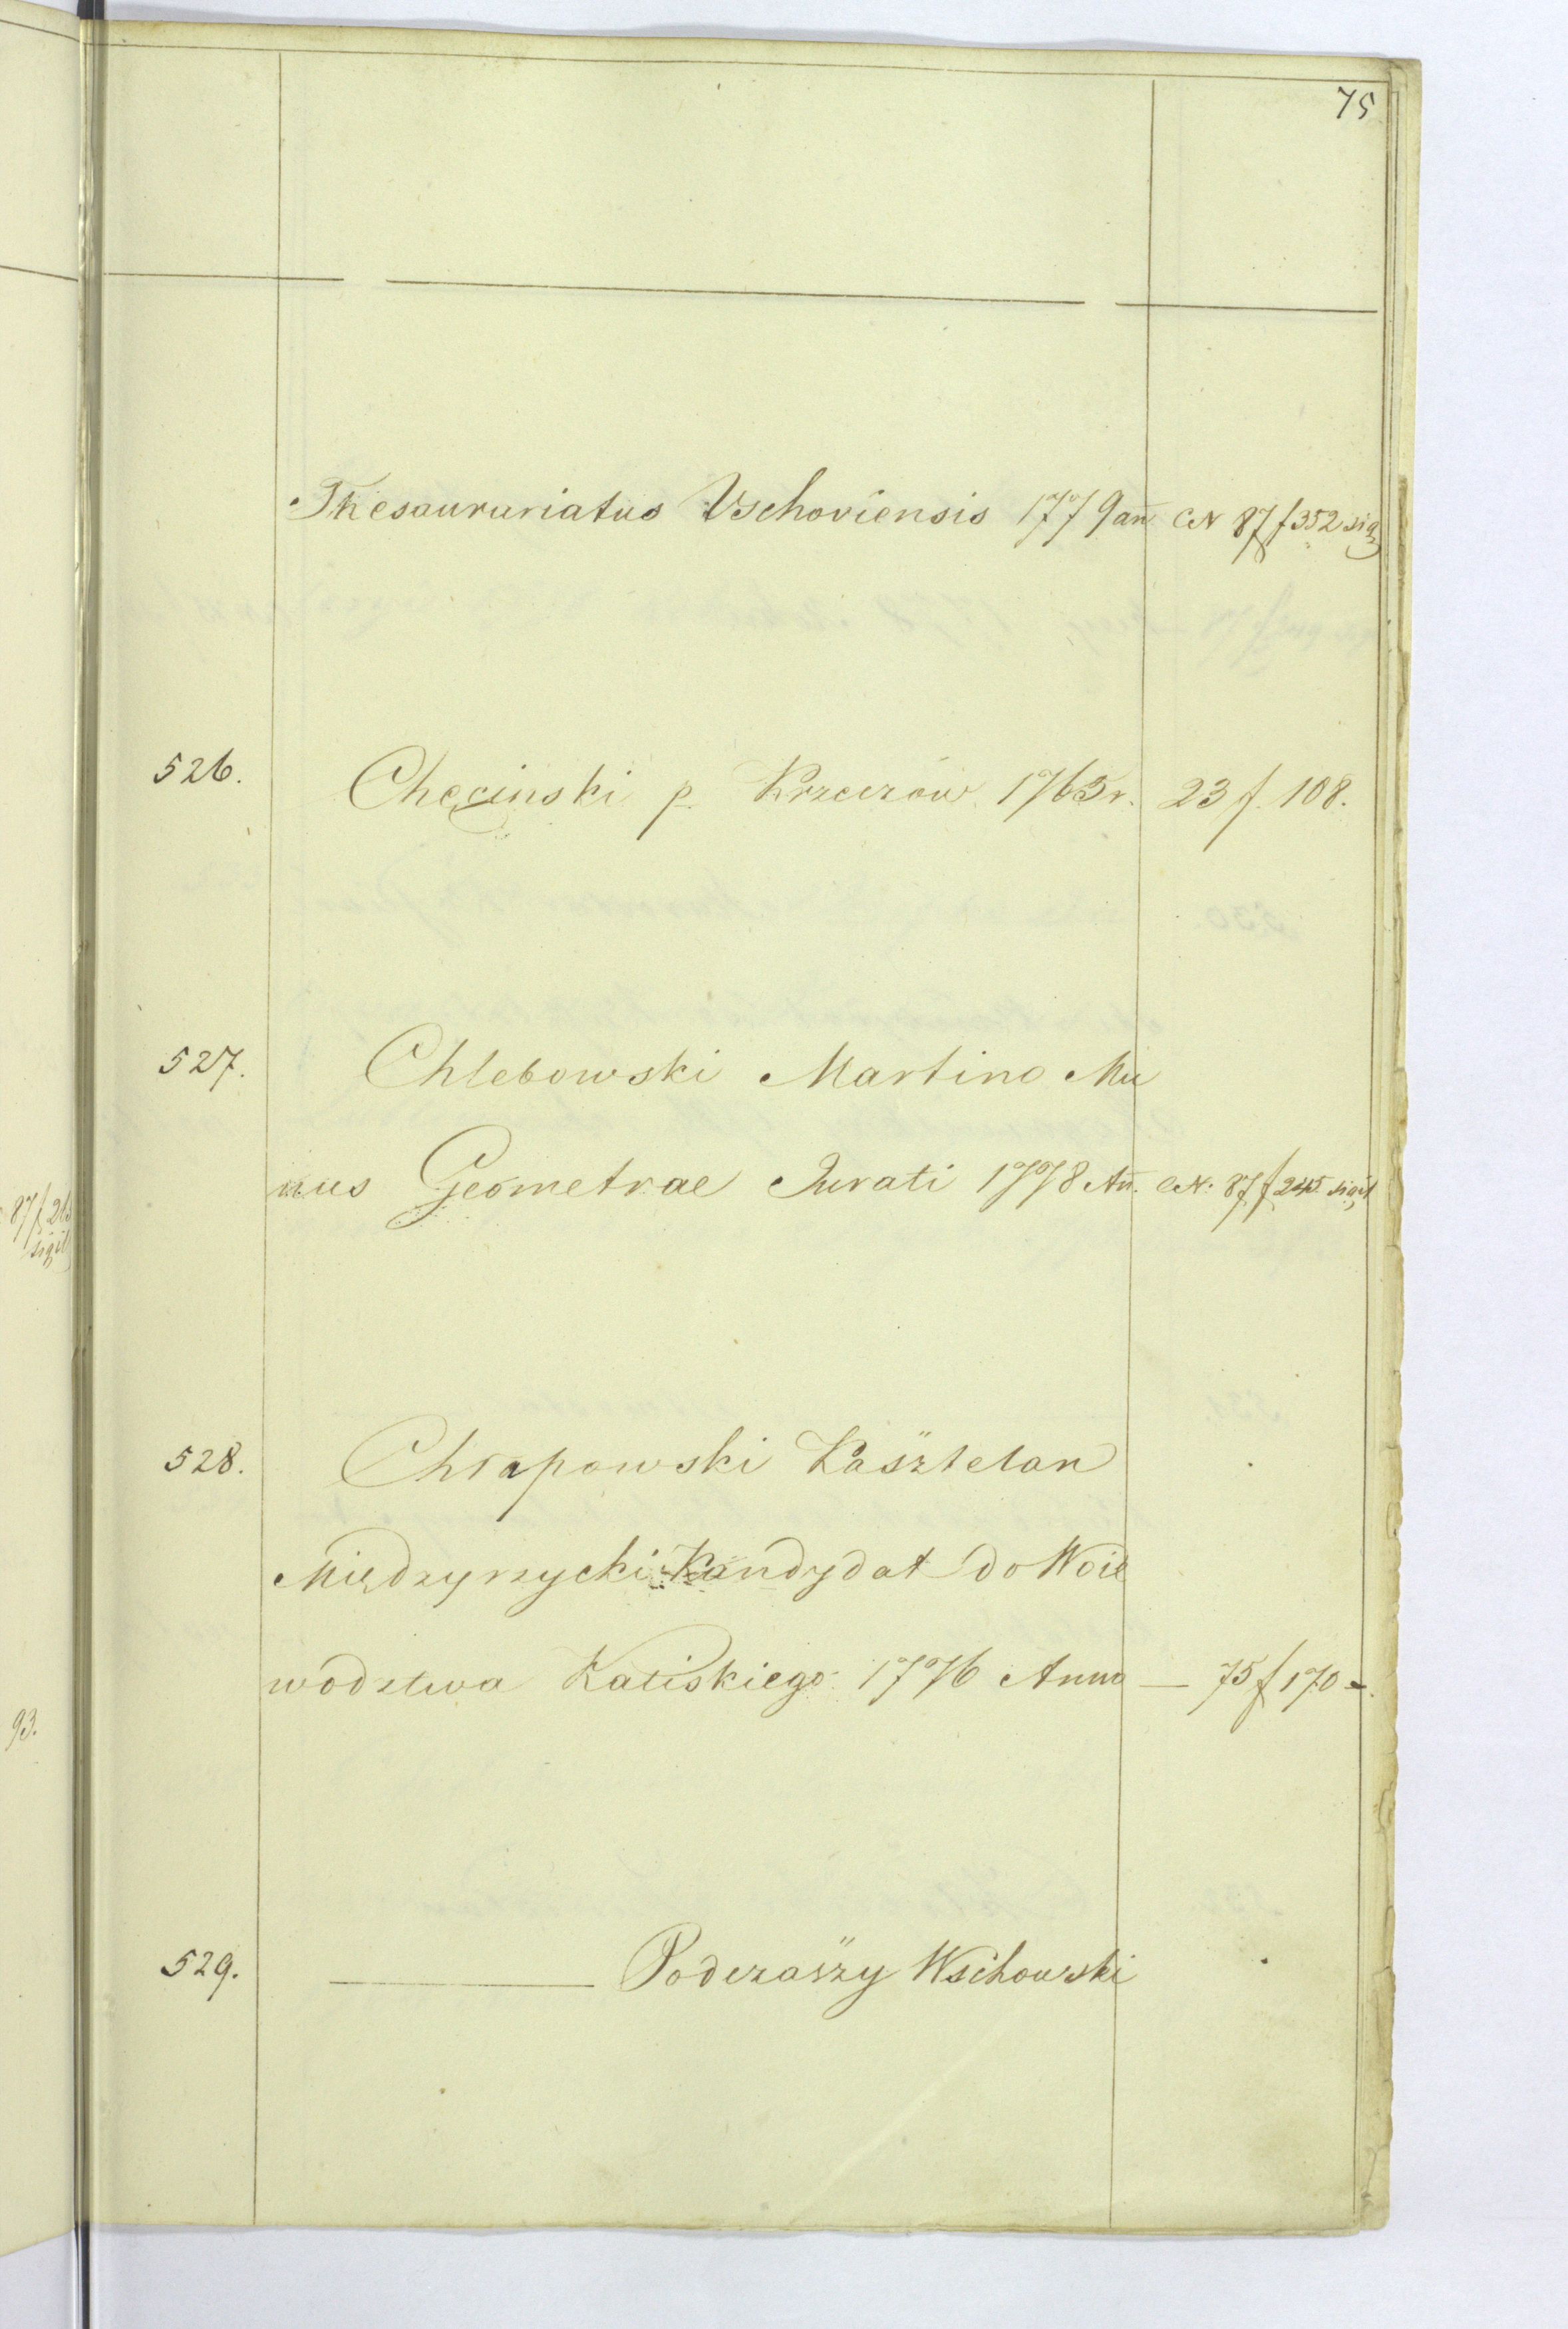 75
Thesaurariatus Vschoviensis 1779 an̄ CN 87 f 352 sig
526. Checinski p. Krzeczow 1763 r. 23 f. 108.
527. Chlebowski Martino Mu
nus Geometrae Jurati 1778 An̄. CN: 87 f 245 sigil
87 f
sigil
528. Chrapowski Kasztelan
Międzyrzycki Kandydat do Woie
wodztwa Kaliskiego 1776 Anno — 75 f 170 -.
93.
529. ——— Podczaszy Wschowski